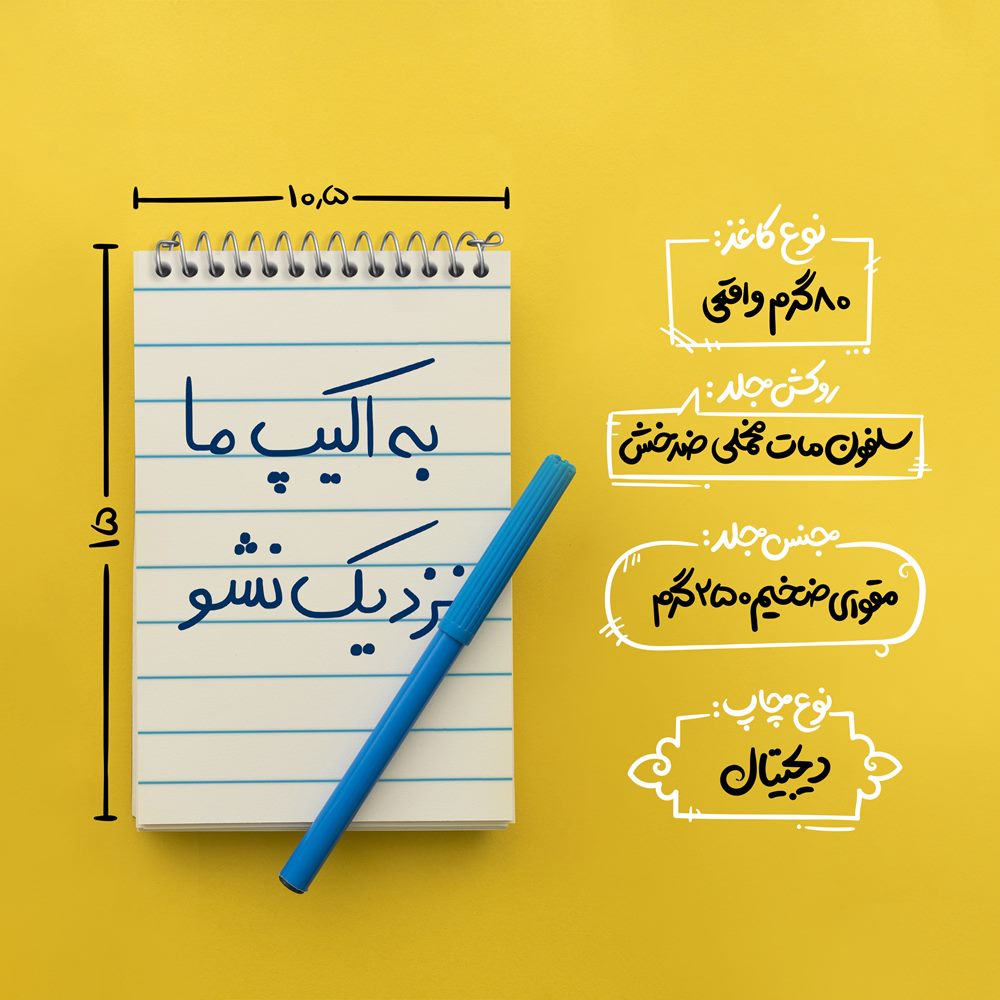 ۱۰٫۵
۱۵
به اکیپ ما
نزدیک نشو
نوع کاغذ:
۸۰ گرم واقعی
روکش جلد:
سلفون مات مخملی ضدخش
جنس جلد:
مقوای ضخیم ۲۵۰ گرم
نوع چاپ:
دیجیتال